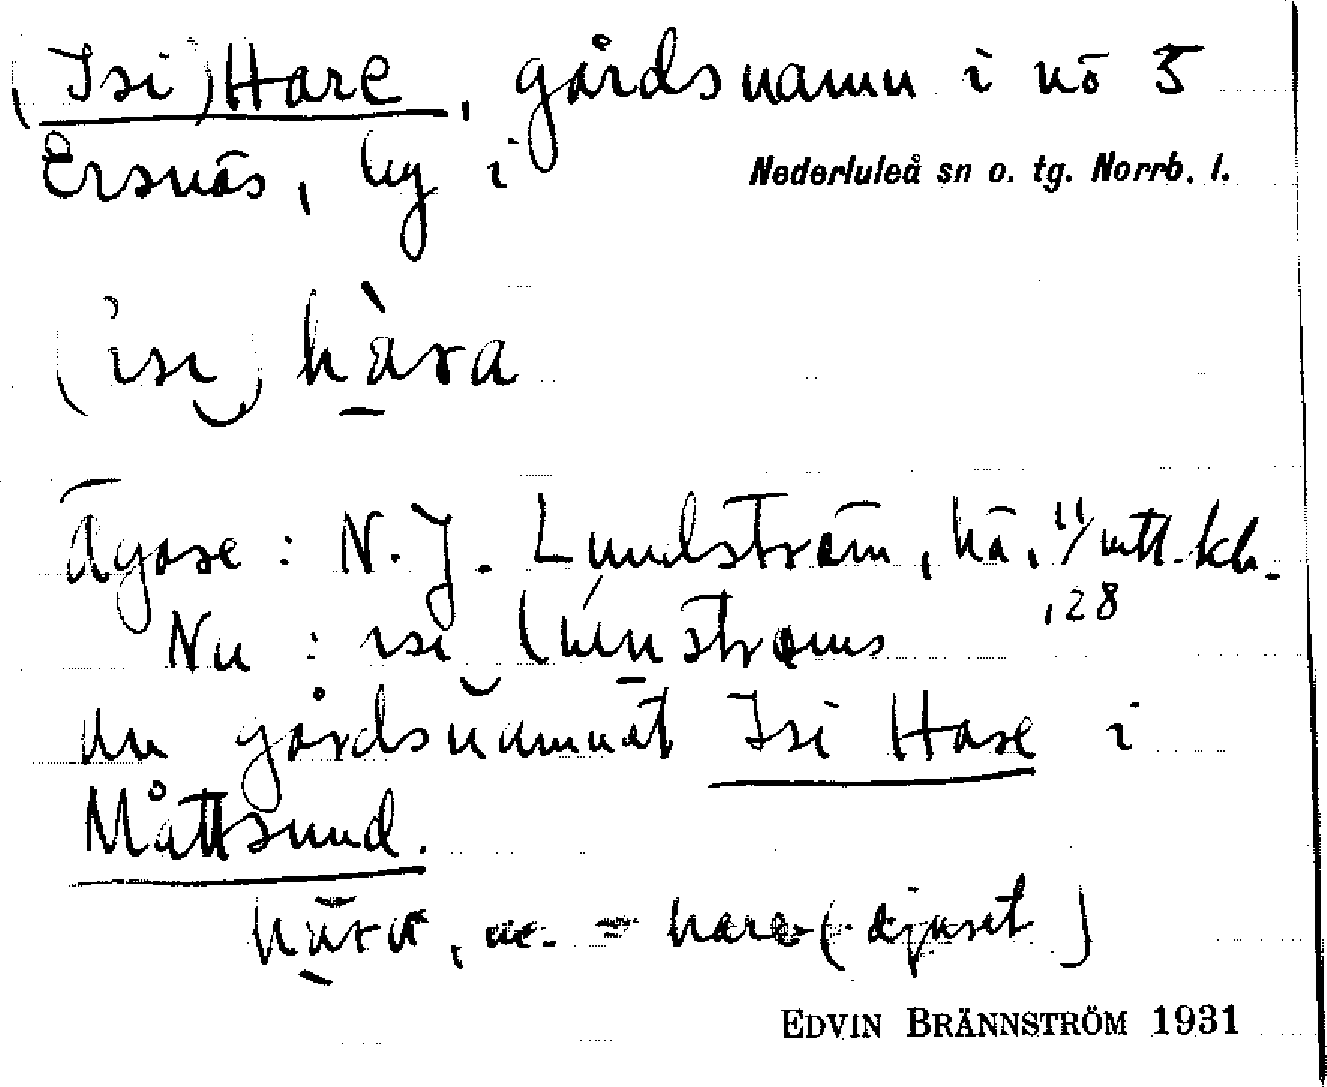 (Isi) Hare, gårdsnamn i nō 5
Ersnäs, by i Nederluleå sn o. tg. Norrb. l.
(isi) hàra
Ägare: N. J. Lundström,
,28
Nu : isi
gårdsnamnet Isi Hare i
Måttsund.
hara, m. = hare (djuret)
EDVIN BRÄNNSTRÖM 1931